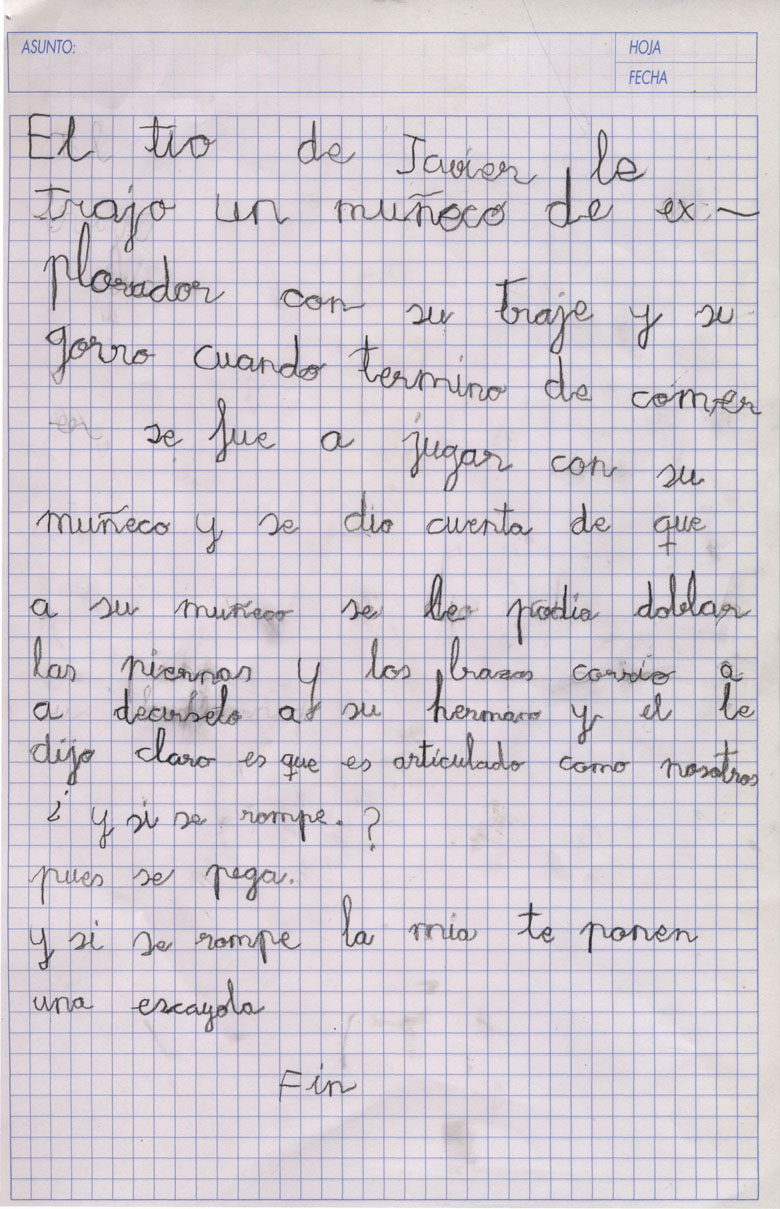 ASUNTO:
HOJA
FECHA
El tio de Javier le
trajo un muñeco de ex-
plorador con su traje y su
gorro cuando termino de comer
se fue a jugar con su
muñeco y se dio cuenta de que
a su muñeco se le podia doblar
las piernas y los brazos corrio a
a decirselo a su hermano y el le
dijo claro es que es articulado como nosotros
¿ y si se rompe. ?
pues se pega.
y si se rompe la mia te ponen
una escayola
Fin